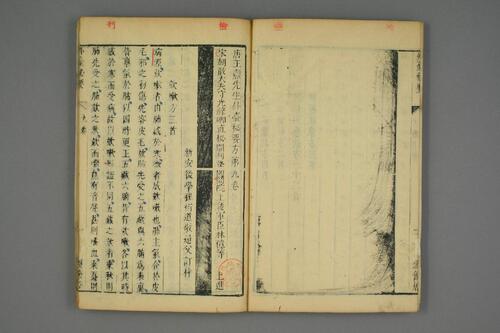 唐王燾先生外臺秘要方第九卷
宋朝散大夫守光祿卿直秘閣判登聞檢院上護軍臣林億等 上進
新安後學程衍道敬通父訂梓
欬嗽方三首
病源欬嗽者由肺感於寒微者成欬嗽也肺主氣合於皮
毛邪之初傷先客皮毛故肺先受之五臟與六腑為表裏
皆稟氣於肺以四時更王五臟六腑皆有欬嗽各以其時
感於寒而受病故以欬嗽形證不同五臟之欬者乘秋則
肺先受之肺欬之狀欬而喘息有音聲甚則唾血乘夏則
外臺秘要 九卷